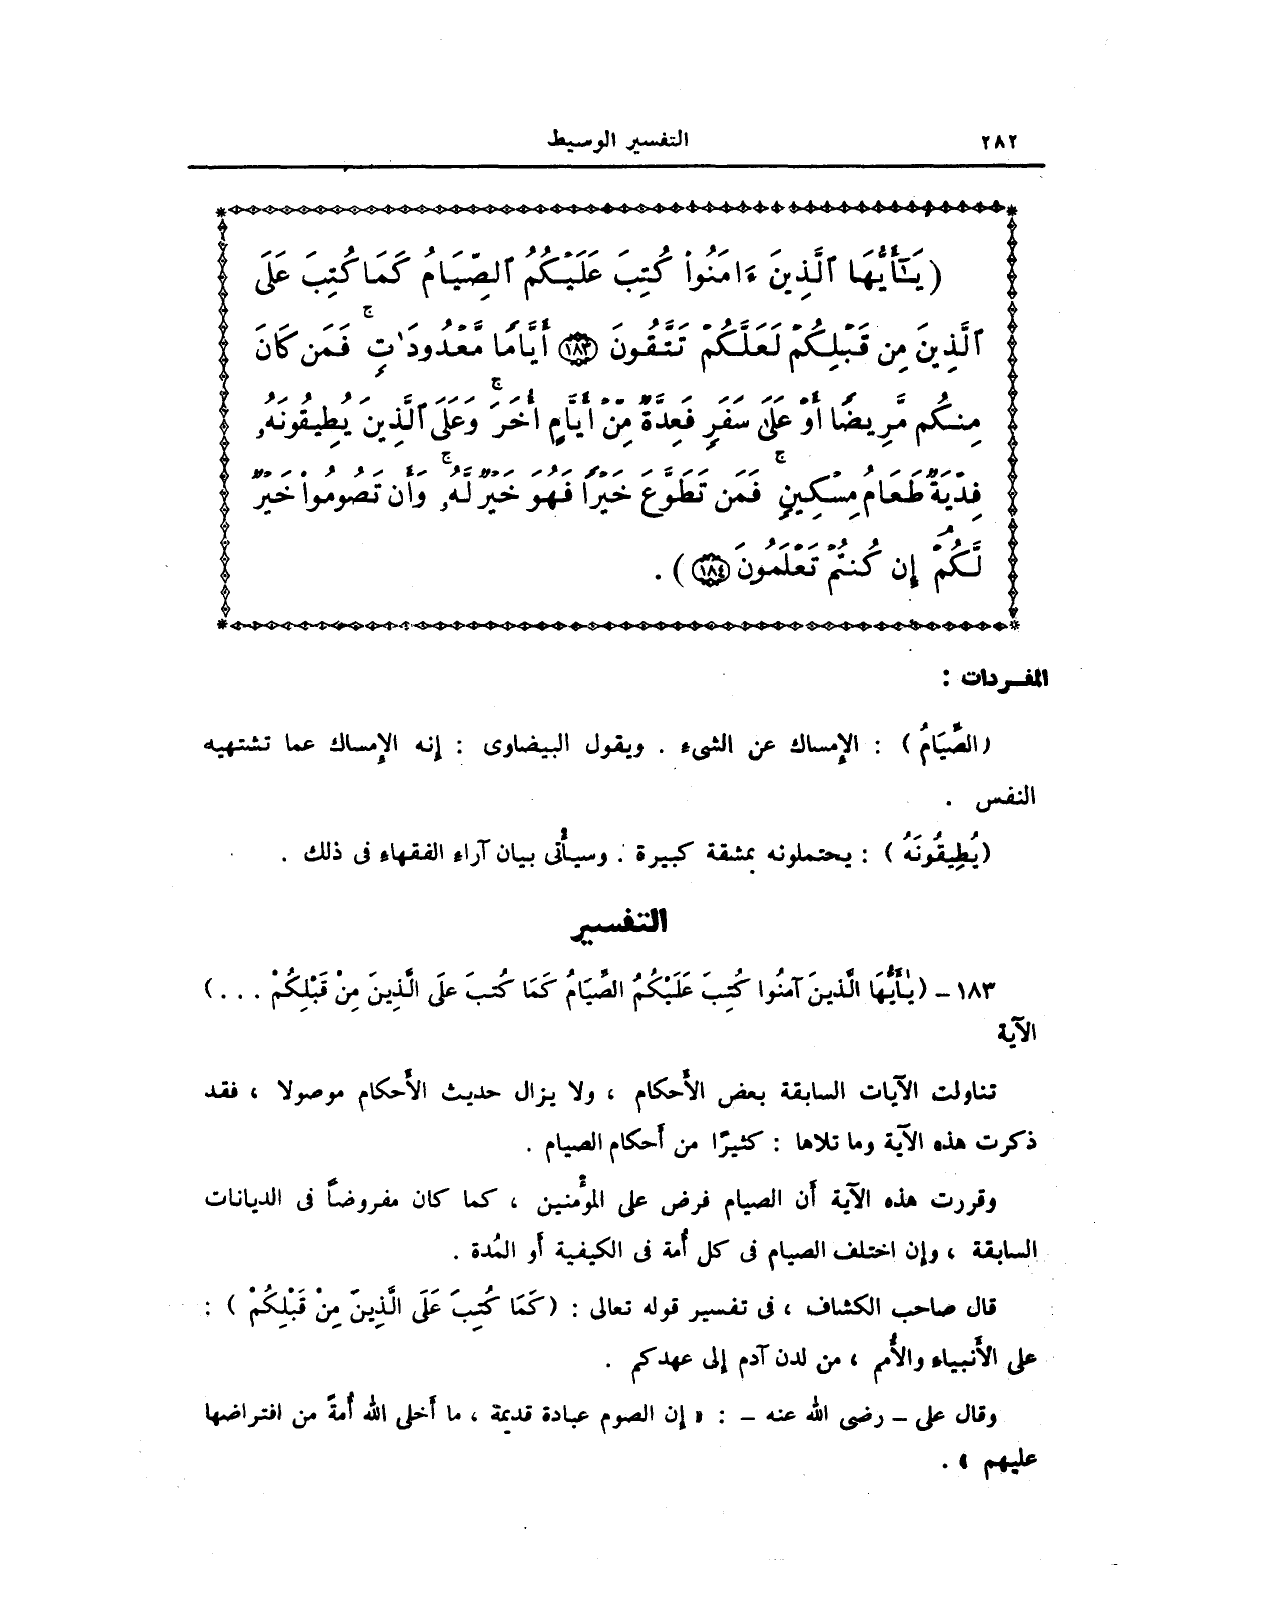 ٢٨٢ التفسير الوسيط
(يَـٰٓأَيُّهَا ٱلَّذِينَ ءَامَنُوا۟ كُتِبَ عَلَيْكُمُ ٱلصِّيَامُ كَمَا كُتِبَ عَلَى
ٱلَّذِينَ مِن قَبْلِكُمْ لَعَلَّكُمْ تَتَّقُونَ ١٨٣ أَيَّامًا مَّعْدُودَٰتٍ ۚ فَمَن كَانَ
مِنكُم مَّرِيضًا أَوْ عَلَىٰ سَفَرٍ فَعِدَّةٌ مِّنْ أَيَّامٍ أُخَرَ ۚ وَعَلَى ٱلَّذِينَ يُطِيقُونَهُۥ
فِدْيَةٌ طَعَامُ مِسْكِينٍ ۚ فَمَن تَطَوَّعَ خَيْرًا فَهُوَ خَيْرٌ لَّهُۥ ۚ وَأَن تَصُومُوا۟ خَيْرٌ
لَّكُمْ ۖ إِن كُنتُمْ تَعْلَمُونَ ١٨٤) .
المفـردات :
(الصِّيَامُ) : الإمساك عن الشىء . ويقول البيضاوى : إنه الإمساك عما تشتهيه
النفس .
(يُطِيقُونَهُ) : يحتملونه بمشقة كبيرة . وسيأْتى بيان آراء الفقهاء فى ذلك .
التفسير
١٨٣ – (يٰأَيُّهَا الَّذِينَ آمَنُوا كُتِبَ عَلَيْكُمُ الصِّيَامُ كَمَا كُتِبَ عَلَى الَّذِينَ مِنْ قَبْلِكُمْ . . .)
الآية
تناولت الآيات السابقة بعض الأَحكام ، ولا يزال حديث الأَحكام موصولا ، فقد
ذكرت هذه الآية وما تلاها : كثيرًا من أَحكام الصيام .
وقررت هذه الآية أَن الصيام فرض على المؤْمنين ، كما كان مفروضاً فى الديانات
السابقة ، وإن اختلف الصيام فى كل أُمة فى الكيفية أَو المُدة .
قال صاحب الكشاف ، فى تفسير قوله تعالى : (كَمَا كُتِبَ عَلَى الَّذِينَ مِنْ قَبْلِكُمْ) :
على الأَنبياء والأُمم ، من لدن آدم إلى عهدكم .
وقال على – رضى الله عنه – : « إن الصوم عبادة قديمة ، ما أَخلى الله أُمةً من افتراضها
عليهم » .